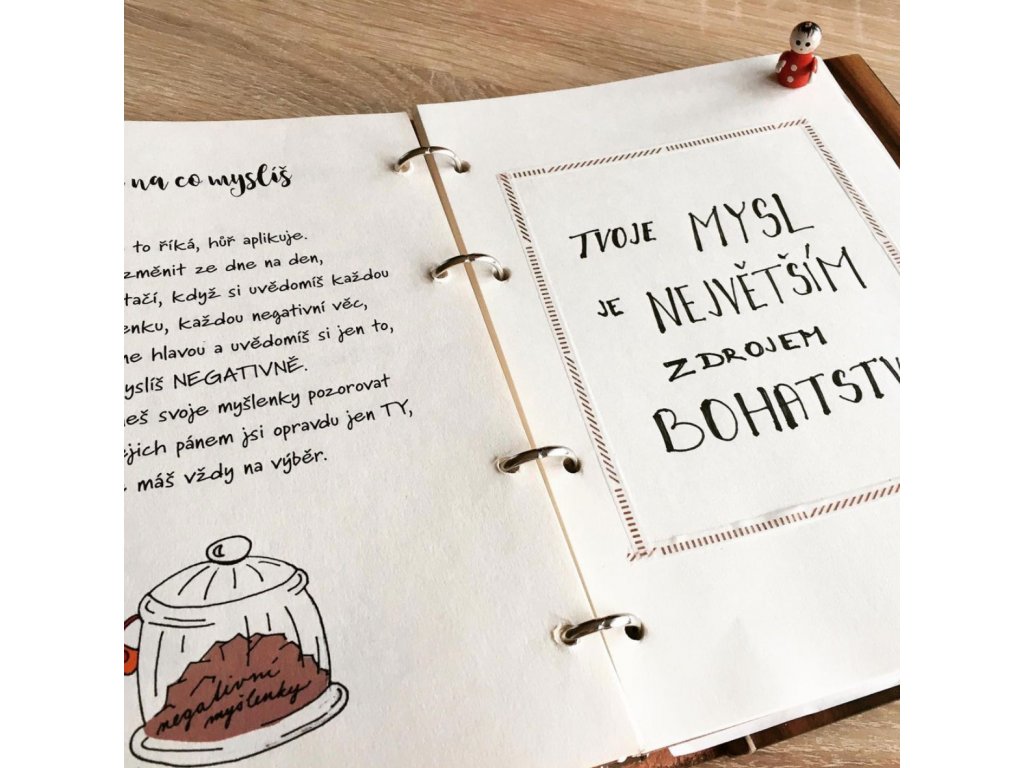 na co myslíš
to říká, hůř aplikuje.
změnit ze dne na den,
tačí, když si uvědomíš každou
enku, každou negativní věc,
ne hlavou a uvědomíš si jen to,
yslíš NEGATIVNĚ.
eš svoje myšlenky pozorovat
ejich pánem jsi opravdu jen TY,
máš vždy na výběr.
negativní
myšlenky
TVOJE MYSL
JE NEJVĚTŠÍM
ZDROJEM
BOHATSTV